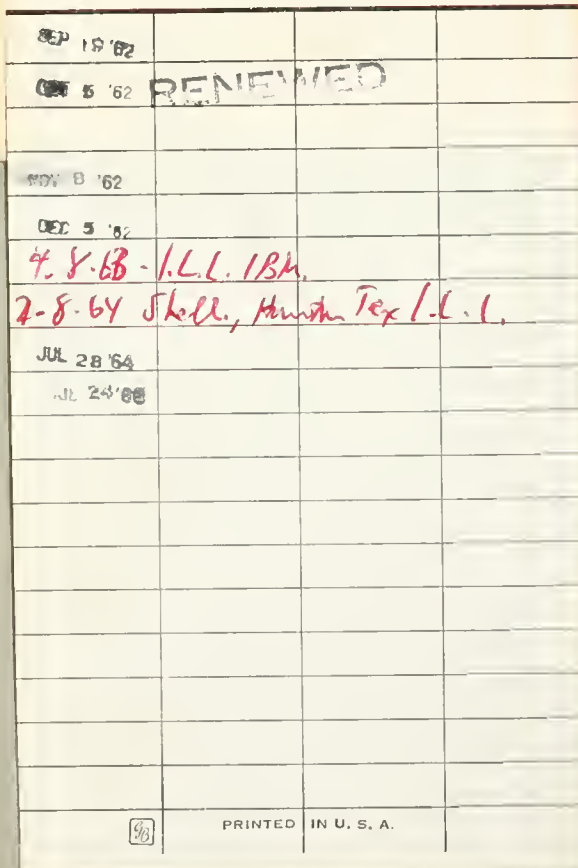 SEP 19 '62
OCT 5 '62 RENEWED
NOV 8 '62
DEC 5 '62
4-8-63 - I.L.L. IBM.
7-8-64 Shell., Houston Tex I.L.L.
JUL 28 '64
JUL 24
GB PRINTED IN U. S. A.